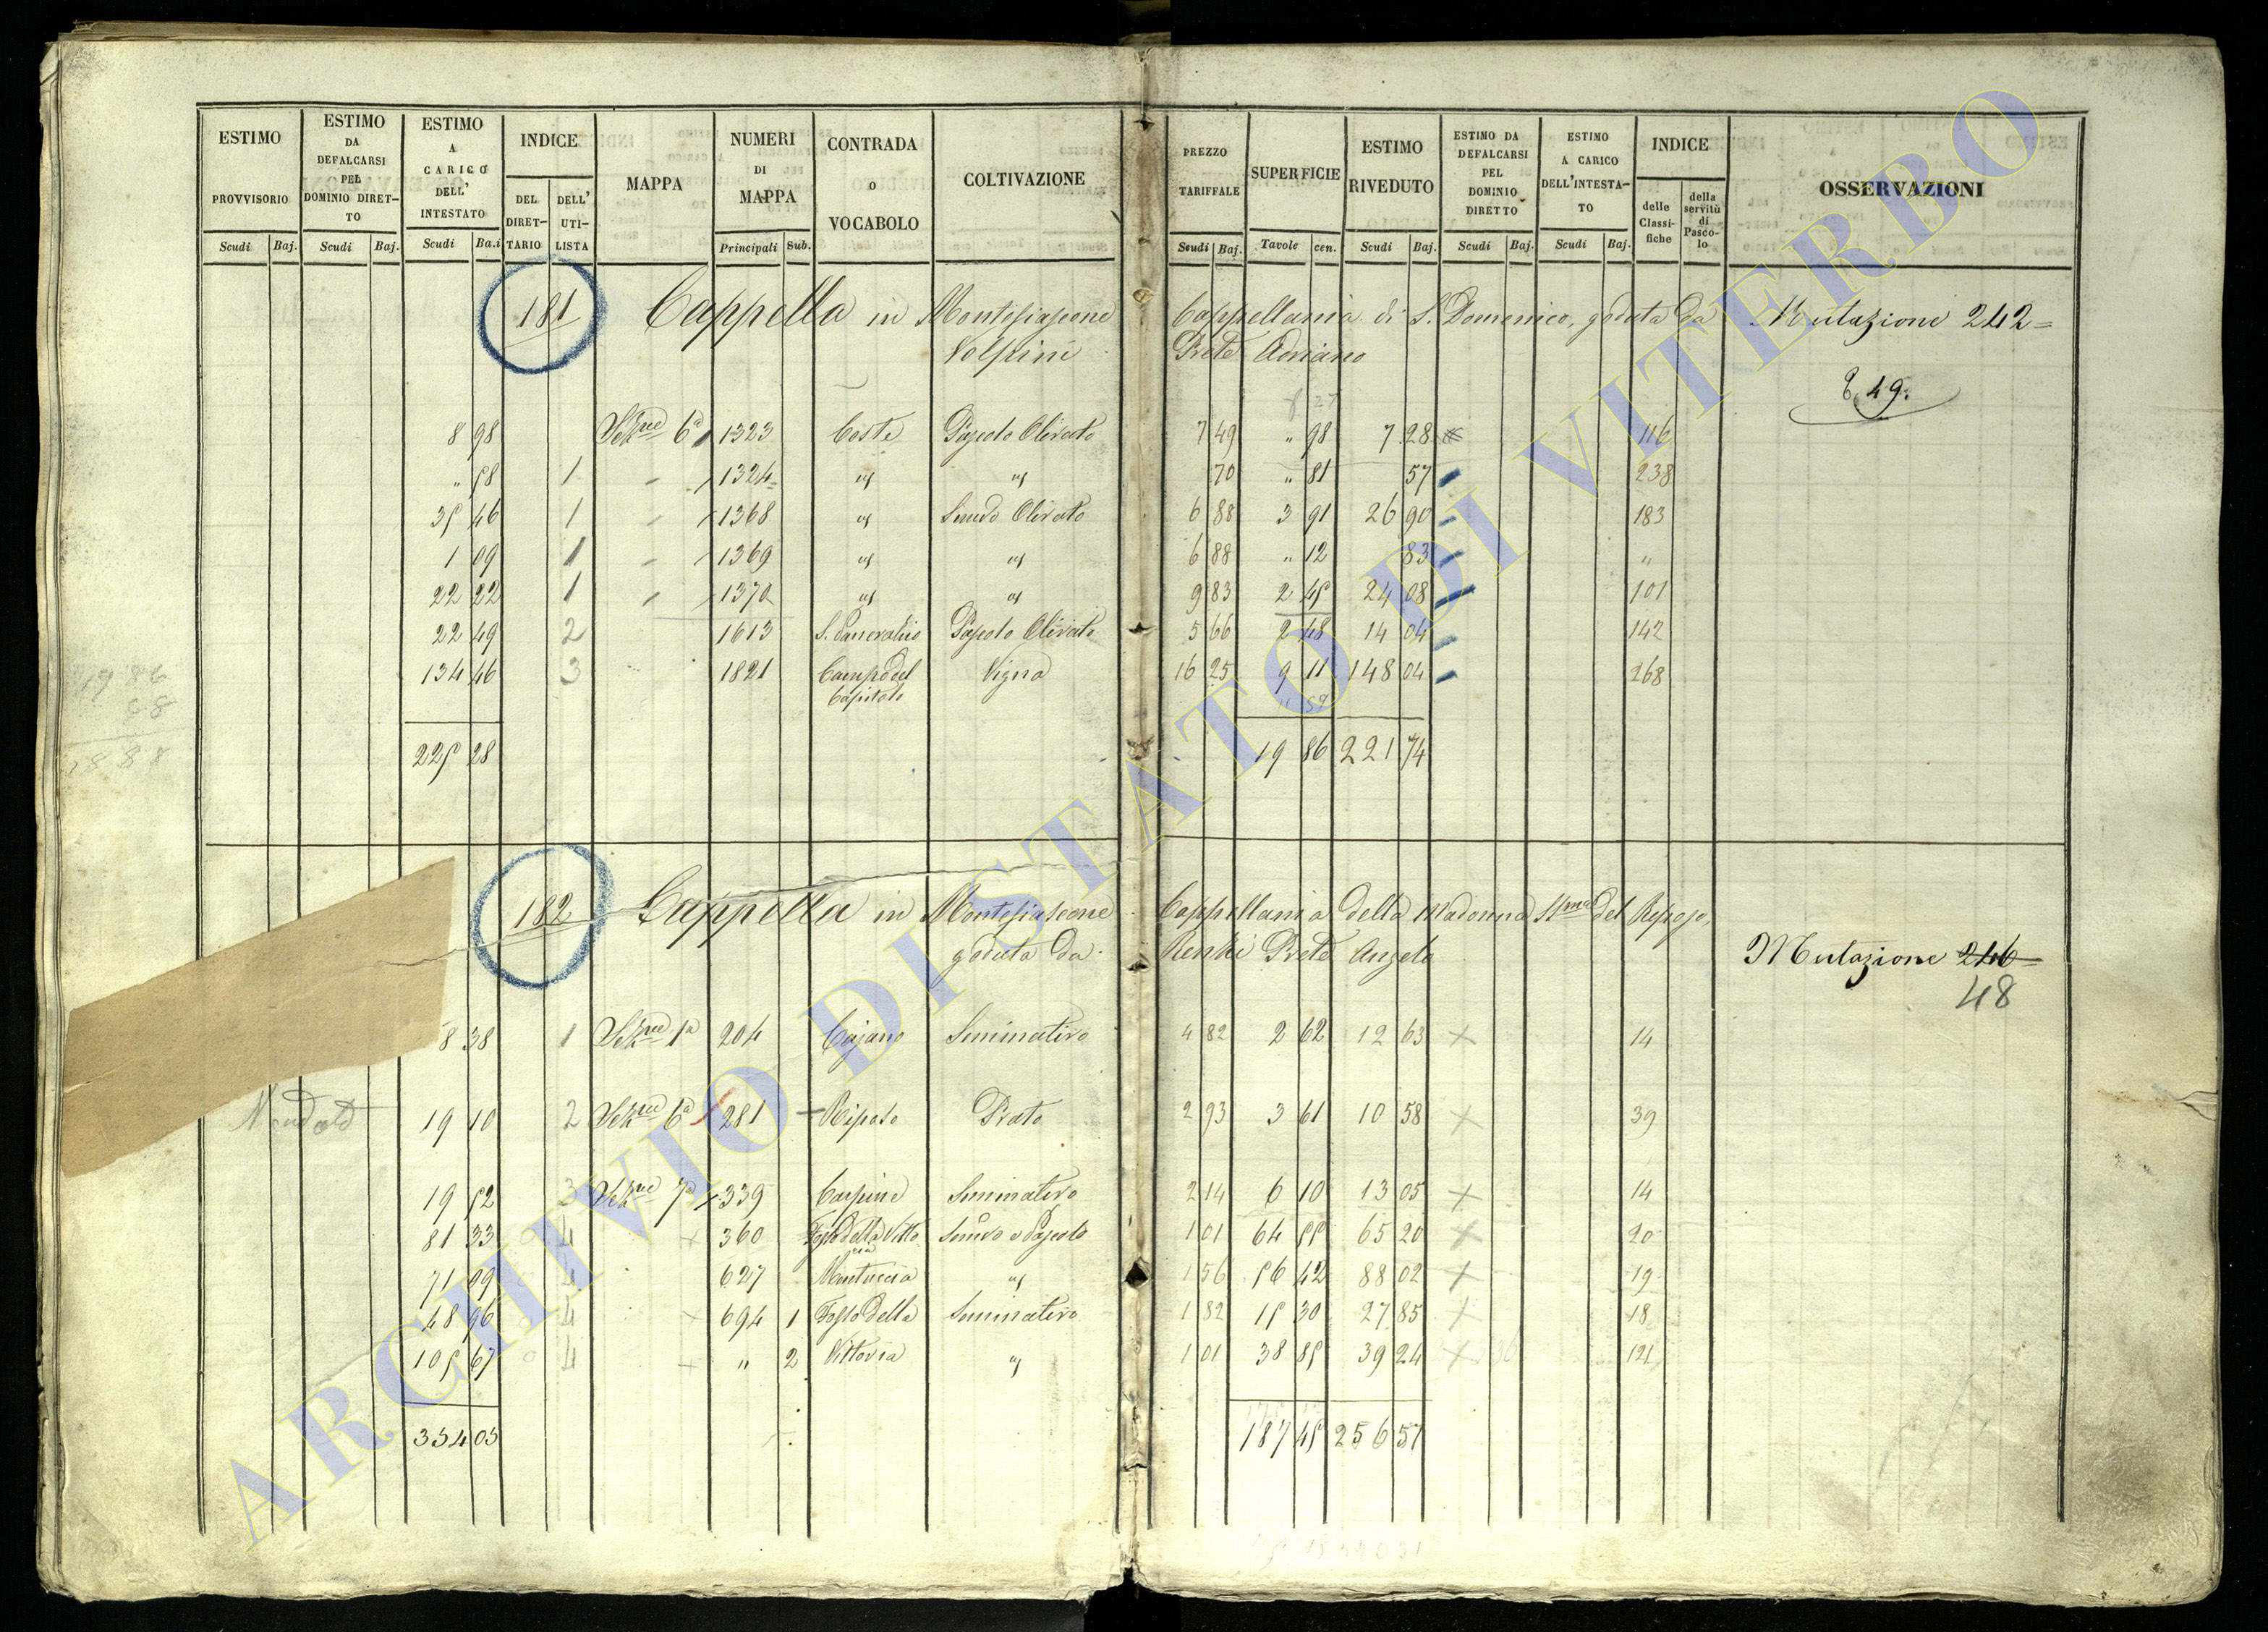 ESTIMO PROVVISORIO Scudi Baj.
ESTIMO DA DEFALCARSI PEL DOMINIO DIRET-TO Scudi Baj.
ESTIMO A CARICO DELL' INTESTATO Scudi Ba.i
INDICE DEL DIRET-TARIO DELL' UTI-LISTA
MAPPA
NUMERI DI MAPPA Principali Sub.
CONTRADA O VOCABOLO
COLTIVAZIONE
PREZZO TARIFFALE Scudi Baj.
SUPERFICIE Tavole cen.
ESTIMO RIVEDUTO Scudi Baj.
ESTIMO DA DEFALCARSI PEL DOMINIO DIRETTO Scudi Baj.
ESTIMO A CARICO DELL'INTESTA-TO Scudi Baj.
INDICE delle Classi-fiche della servitù di Pasco-lo
OSSERVAZIONI
181 Cappella in Montefiascone Cappellania di S. Domenico, goduta da Mutazione 242=
Volpini Prete Adriano
49.
8 98 Sezne 6a 1323 Coste Pascolo Olivato 7 49 " 98 7 28 116
" 58 1 1324 id id 70 " 81 57 238
35 46 1 1368 id Semvo Olivato 6 88 3 91 26 90 183
1 09 1 1369 id id 6 88 " 12 83 "
22 22 1 1370 id id 9 83 2 45 24 08 101
22 49 2 1613 S. Pancrazio Pascolo Olivato 5 66 2 48 14 04 142
134 46 3 1821 Campo del Vigna 16 25 9 11 148 04 268
Capitolo
225 28 19 86 221 74
19 86
182 Cappella in Montefiascone Cappellania della Madonna SSma del Riposo,
goduta da Prete Angelo
Mutazione 246
48
8 38 1 Sezne 1a 204 Cajano Seminativo 4 82 2 62 12 63 14
19 10 2 Sezne 6a 281 Riposo Prato 2 93 3 61 10 58 39
19 52 3 Sezne 7a 339 Carpine Seminativo 2 14 6 10 13 05 14
81 33 4 360 Fosso della Vitto Semvo e Pascolo 1 01 64 55 65 20 20
ria
71 09 4 627 id 1 56 56 42 88 02 19
48 96 4 694 1 Fosso della Seminativo 1 82 15 30 27 85 18
105 67 4 " 2 Vittoria id 1 01 38 85 39 24 121
354 05 187 45 256 57
ARCHIVIO DI STATO DI VITERBO